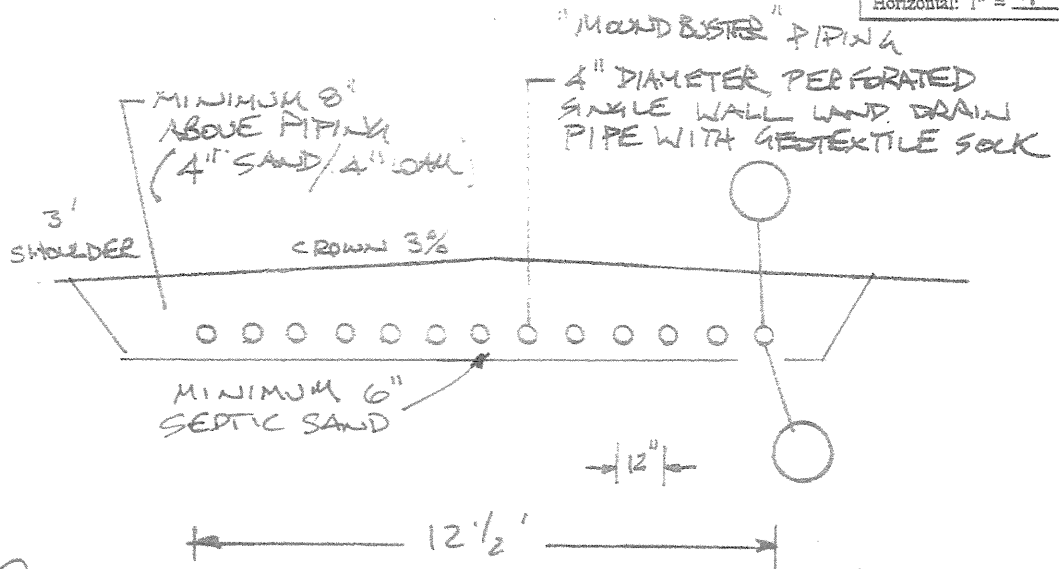 Horizontal: 1" =
"MOUND BUSTER" PIPING
4" DIAMETER PERFORATED
SINGLE WALL LAND DRAIN
PIPE WITH GEOTEXTILE SOCK
MINIMUM 8"
ABOVE PIPING
4" SAND/4" LOAM
3'
SHOULDER
CROWN 3%
MINIMUM 6"
SEPTIC SAND
12"
12 1/2'